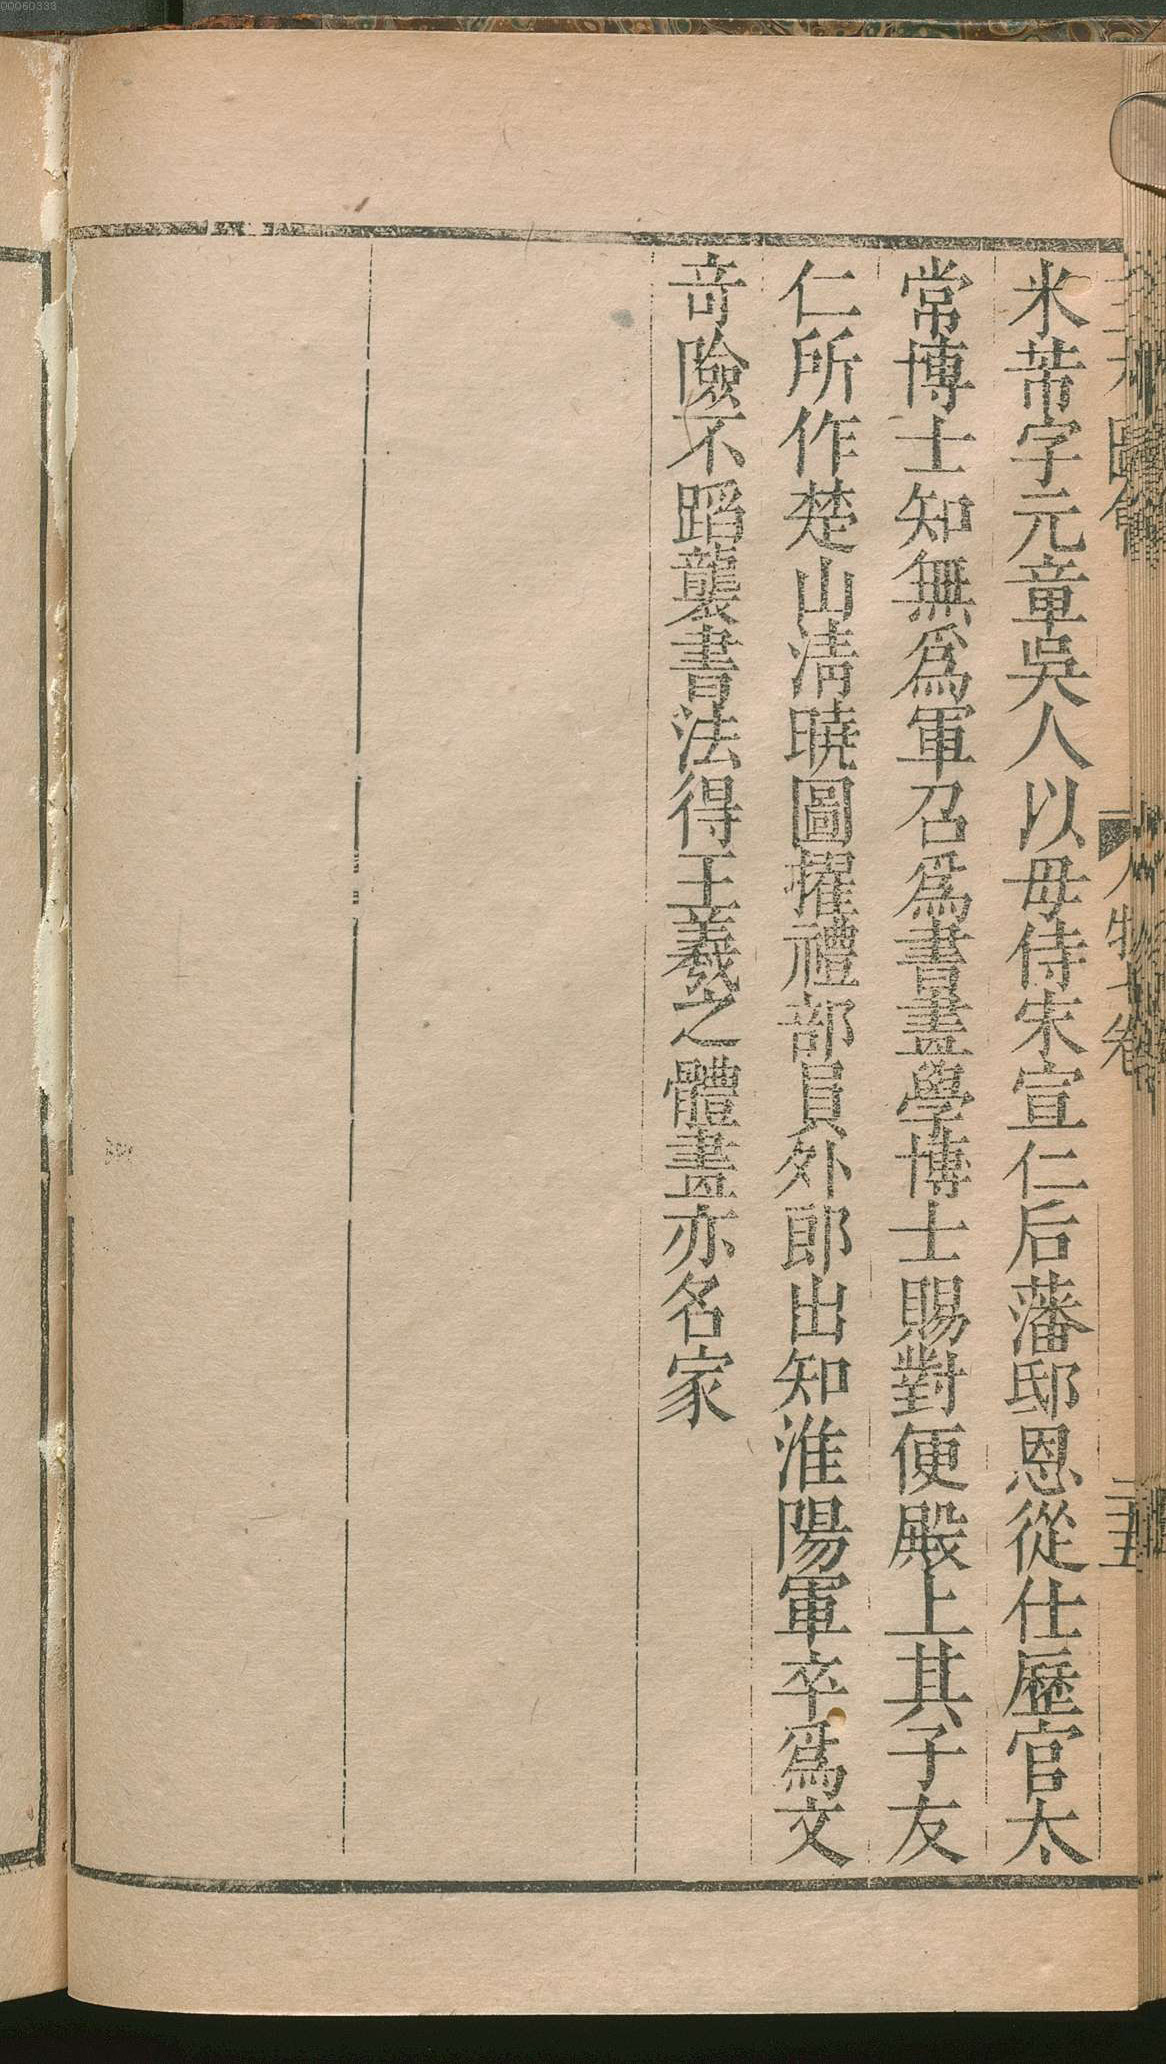 米芾字元章吳人以母侍宋宣仁后藩邸恩從仕歷官太
常博士知無爲軍召爲書畫學博士賜對便殿上其子友
仁所作楚山清曉圖擢禮部員外郎出知淮陽軍卒爲文
奇險不蹈襲書法得王羲之體畫亦名家
人物七卷
二十五
00060333